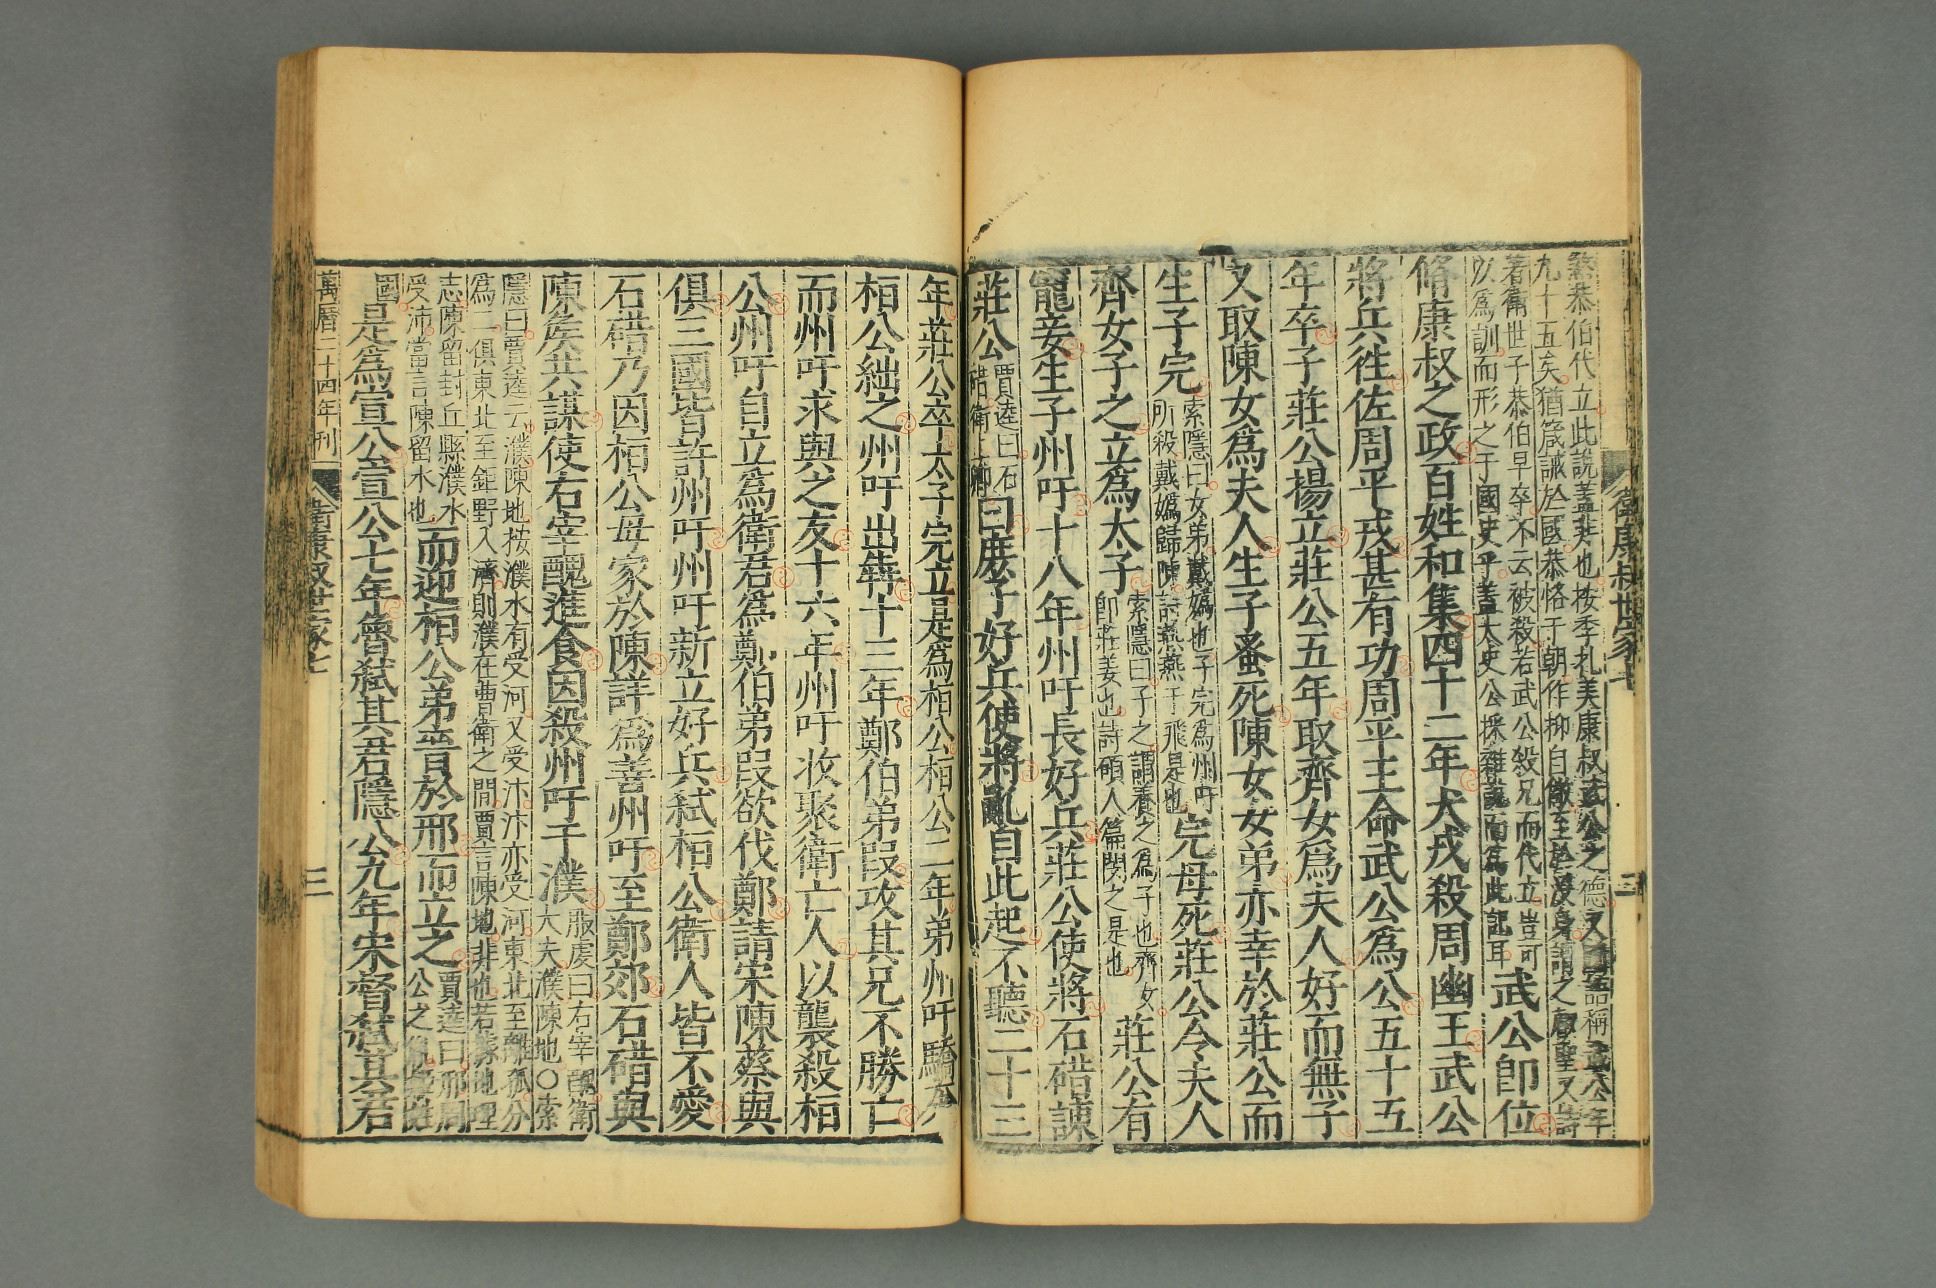 衛康叔世家七
三
篡恭伯代立此說蓋非也按季札美康叔武公之德又國語稱武公年
九十五矣猶箴誡於國恭恪于朝作抑自儆至於沒身謂之睿聖又詩
著衛世子恭伯早卒不云被殺若武公殺兄而代立豈可
以爲訓而形之于國史乎蓋太史公採雜說而爲此記耳
武公卽位
脩康叔之政百姓和集四十二年犬戎殺周幽王武公
將兵徃佐周平戎甚有功周平王命武公爲公五十五
年卒子莊公揚立莊公五年取齊女爲夫人好而無子
又取陳女爲夫人生子蚤死陳女女弟亦幸於莊公而
生子完
索隱曰女弟戴嬀也子完爲州吁
所殺戴嬀歸陳詩燕燕于飛是也
完母死莊公令夫人
齊女子之立爲太子
索隱曰子之謂養之爲子也齊女
卽莊姜也詩碩人篇閔之是也
莊公有
寵妾生子州吁十八年州吁長好兵莊公使將石碏諫
莊公
賈逵曰石
碏衛上卿
曰庶子好兵使將亂自此起不聽二十三
年莊公卒太子完立是爲桓公桓公二年弟州吁驕奢
桓公絀之州吁出犇十三年鄭伯弟段攻其兄不勝亡
而州吁求與之友十六年州吁收聚衛亡人以襲殺桓
公州吁自立爲衛君爲鄭伯弟段欲伐鄭請宋陳蔡與
俱三國皆許州吁州吁新立好兵弒桓公衛人皆不愛
石碏乃因桓公母家於陳詳爲善州吁至鄭郊石碏與
陳矦共謀使右宰醜進食因殺州吁于濮
服虔曰右宰醜衛
大夫濮陳地○索
隱曰賈逵云濮陳地按濮水有受河又受汴汴亦受河東北至離狐分
爲二俱東北至鉅野入濟則濮在曹衛之閒賈言陳地非也若據地理
志陳留封丘縣濮水
受沛當言陳留水也
而迎桓公弟晉於邢而立之
賈逵曰邢周
公之胤姬姓
國
是爲宣公宣公七年魯弒其君隱公九年宋督弒其君
萬曆二十四年刊
衛康叔世家七
三